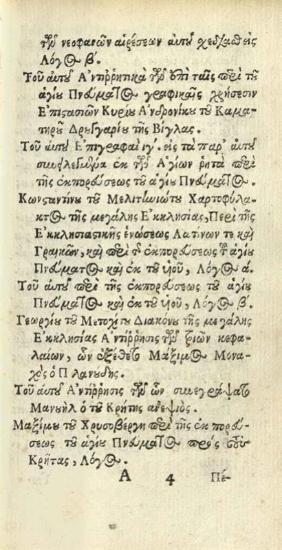 τῶν νεοφανῶν αἱρέσεων αὐτῷ χεδιασθεὶς
Λόγος β΄.
Τοῦ αὐτοῦ Ἀντιῤῥητικὰ τῶν ἐπὶ ταῖς περὶ τοῦ
ἁγίου Πνεύματος γραφικαῖς χρήσεσιν
Ἐπιστασιῶν Κυρίου Ἀνδρονίκου τοῦ Καμα-
τηροῦ Δρουγγαρίου τῆς Βίγλας.
Τοῦ αὐτοῦ Ἐπιγραφαὶ ιγ΄. εἰς τὰ παρ' αὐτοῦ
συνειλεγμένα ἐκ τῶν Ἁγίων ῥητὰ περὶ
τῆς ἐκπορεύσεως τοῦ ἁγίου Πνεύματος.
Κωνσταντίνου τοῦ Μελιτηνιώτου Χαρτοφύλα-
κος τῆς μεγάλης Ἐκκλησίας, Περὶ τῆς
Ἐκκλησιαστικῆς ἑνώσεως Λατίνων τε καὶ
Γραικῶν, καὶ περὶ τῆς ἐκπορεύσεως τοῦ ἁγίου
Πνεύματος καὶ ἐκ τοῦ υἱοῦ, Λόγος α΄.
Τοῦ αὐτοῦ περὶ τῆς ἐκπορεύσεως τοῦ ἁγίου
Πνεύματος καὶ ἐκ τοῦ υἱοῦ, Λόγος β΄.
Γεωργίου τοῦ Μετοχίτου Διακόνου τῆς μεγάλης
Ἐκκλησίας Ἀντίῤῥησις τῶν τριῶν κεφα-
λαίων, ὧν ἐξέθετο Μάξιμος Μονα-
χὸς ὁ Πλανούδης.
Τοῦ αὐτοῦ Ἀντίῤῥησις τῶν ὧν συνεγράψατο
Μανουὴλ ὁ τοῦ Κρήτης ἀνεψιός.
Μαξίμου τοῦ Χρυσοβέργη περὶ τῆς ἐκπορεύ-
σεως τοῦ ἁγίου Πνεύματος πρὸς τοὺς
Κρῆτας, Λόγος.
A 4 Πέ-